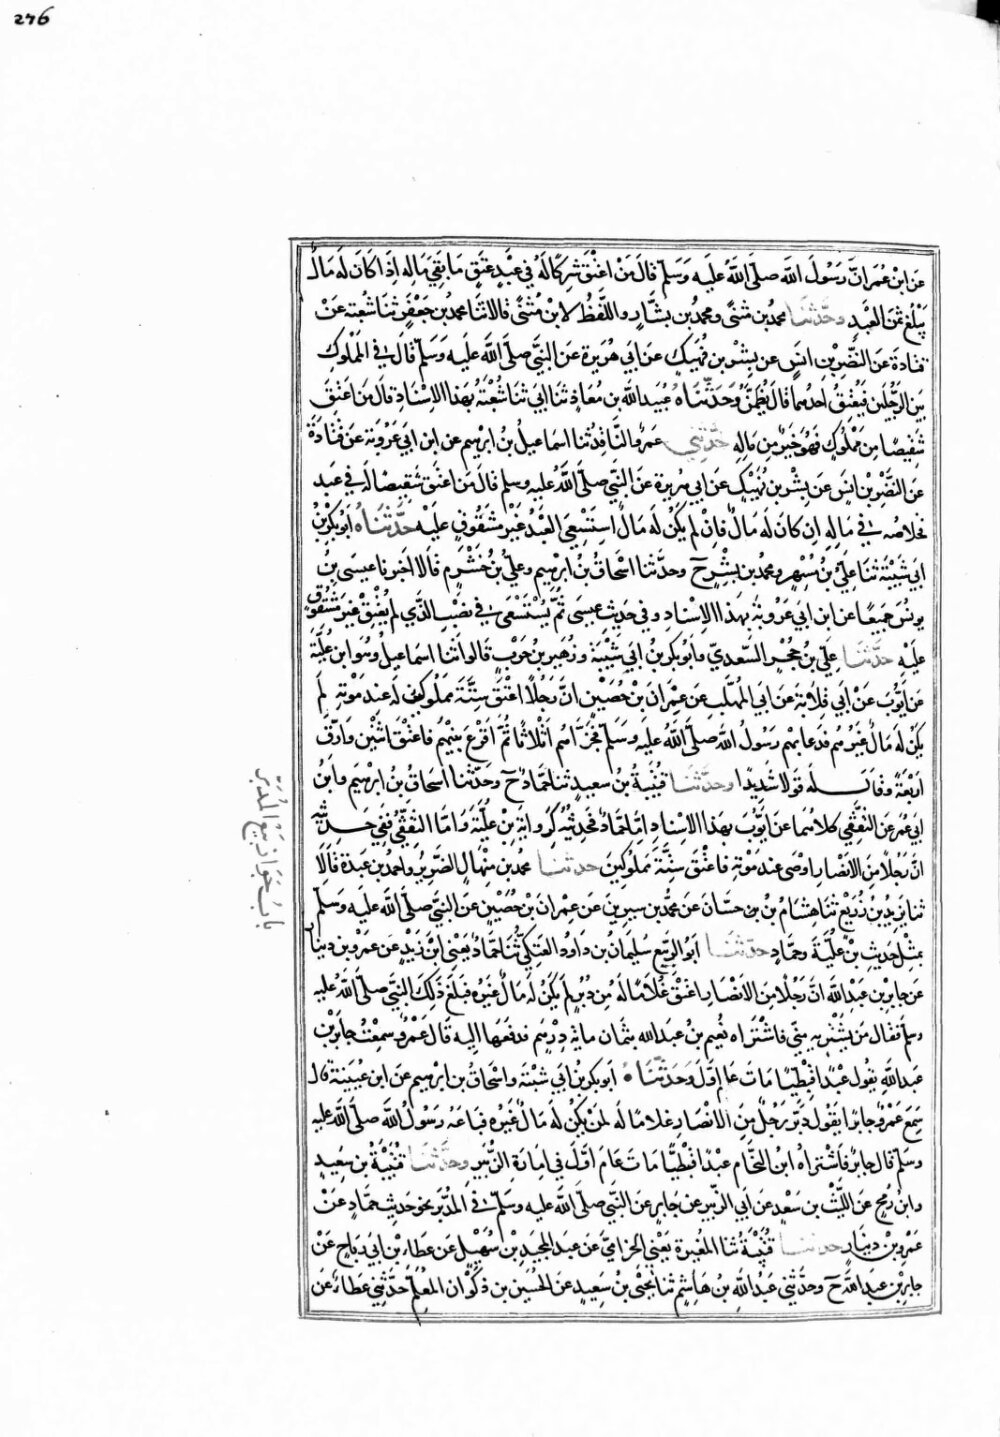 276
عَنِ ابْنِ عُمَرَ اَنَّ رَسُولَ اللَّه صلَّى اللَّهُ عَلَيه وَسَلَّم قَالَ مَنْ اَعْتَقَ شِركًا لَهُ فِى عَبْدٍ عَتَقَ مَا بَقِيَ فِى مَالِهِ اِذَا كَانَ لَه مَالٌ
يَبْلُغُ ثَمَنَ العَبْدِ وحَدَّثَنَا محمدُ بن مثنى ومحمدُ بن بشَّارٍ واللَّفْظ لابْنِ مُثَنَّى قَالَا ثَنَا محمدُ بن جَعْفَرٍ ثنا شُعْبَة عَنْ
قتادَةَ عَنِ النَّضْرِ بْنِ انَسٍ عن بَشِيْرِ بن نَهِيكٍ عَنْ اَبي هُرَيرَةَ عَنِ النَّبيِّ صلَّى اللَّه عَلَيه وَسَلَّم قَالَ فى المَمْلُوكِ
بَيْنَ الرَّجُلَيْنِ فَيُعْتِقُ اَحَدُهُمَا قَالَ يَضْمَنُ وَحَدَّثَنَاهُ عُبَيدُ اللَّه بن مُعَاذٍ ثنا اَبي ثنا شُعْبَة بِهَذا الاِسْنَادِ قَالَ مَنْ اَعْتَقَ
شَقِيصًا مِن مَمْلُوكٍ فَهُوَ حُرٌّ مِن مَالِهِ حَدَّثَنِي عَمْرٌو النَّاقِدُ ثنا اسماعيلُ بن ابرهيم عن ابن ابي عَرُوبَة عَنْ قتَادَةَ
عَنِ النَّضْرِ بْنِ انَسٍ عَن بَشِيْرِ بن نَهِيْكٍ عَن ابي هريرة عَنِ النَّبيِّ صلَّى اللَّهُ عليه وسلم قَالَ مَن اَعْتَقَ شَقِيصًا لَهُ في عَبدٍ
فخلاصُه في مَالِهِ اِن كَانَ لَه مَالٌ فَاِنْ لَم يَكُنْ لَه مَالٌ استُسْعِيَ العَبْدُ غَيْرَ مَشْقُوقٍ عَلَيْه حَدَّثَنَاهُ اَبُو بَكْرِ بنُ
ابي شَيْبَة ثَنَا عَلِيُّ بْنُ مُسْهِرٍ ومحمدُ بن بِشْرٍ ح وحدَّثنا اسْحَاقُ بن ابرهيم وعَليُّ بنُ خَشْرَمٍ قَالَا اخبرنا عيسى بنُ
يونسَ جَميعًا عن ابن ابي عَرُوبَة بِهَذا الاِسْنادِ وفي حَدِيثِ عيسى ثمَّ يُسْتَسْعَى فى نَصِيبِ الَّذي لَم يُعْتِقْ غَيْرَ مَشْقُوقٍ
عَلَيْهِ حَدَّثَنَا عليُّ بن حُجْرٍ السَّعْدِيُّ وابو بَكْرِ بنُ ابي شَيْبَة وزُهَيرُ بن حَرْبٍ قَالُوا ثَنَا اسمَاعيل وهُوَ ابن عُليَّةَ
عَن اَيُّوبَ عَنْ اَبي قِلَابَةَ عَن ابي المُهَلَّبِ عَن عِمْرَانَ بْنِ حُصَيْنٍ انَّ رَجُلًا اَعْتَقَ سِتَّةَ مَمْلُوكِينَ لَهُ عِندَ مَوْتِهِ لَم
يَكُنْ لَه مَالٌ غَيْرُهُم فَدَعا بهم رَسُولُ اللَّه صلَّى اللَّهُ عَلَيه وَسَلَّم فجَزَّاَهُم اَثْلَاثًا ثُمَّ اَقْرَعَ بَيْنَهُم فَاَعْتَقَ اثْنَيْنِ وَاَرَقَّ
اَرْبَعَةً وقَالَ لَه قَولًا شَدِيدًا وحَدَّثَنَا قُتَيْبَةُ بن سعيدٍ ثنا حَمَّادٌ ح وحدَّثنا اسحَاقُ بن ابرهيم وابنُ
ابي عُمَرَ عَنِ الثَّقَفِي كلاهُمَا عَن اَيُّوبَ بهَذا الاِسْنادِ امَّا حَمَّادٌ فحَديثُه كَرِوَايَةِ بْنِ عُلَيَّةَ وَامَّا الثَّقَفيُّ فَفي حَديثِه
انَّ رَجُلًا مِنَ الاَنْصَارِ اوْصَى عِندَ مَوْتِهِ فَاَعْتَقَ سِتَّةَ مَمْلُوكِينَ حدثنا محمدُ بن مِنْهَالٍ الضَّرِيرُ واحمدُ بن عَبْدَةَ قَالَا
ثنا يَزِيدُ بْنُ زُرَيْعٍ ثنا هِشَامُ بْنُ حسَّانَ عَن مُحمَّدِ بن سِيرِينَ عَن عِمْرانَ بْنِ حُصَيْنٍ عَنِ النَّبيِّ صلَّى اللَّه عَلَيه وسَلَّم
بِمِثْلِ حَدِيثِ بْنِ عُلَيَّةَ وحمَّادٍ حدَّثَنَا اَبُو الرَّبيع سُليمَانُ بن دَاودَ العَتَكِيُّ ثنا حَمَّادٌ يَعْنِي ابْنَ زَيْدٍ عَن عَمْرِو بن دِينَارٍ
عَن جابِرِ بْنِ عَبْدِ اللَّه انَّ رَجُلًا مِنَ الاَنصَارِ اعْتَقَ غُلَامًا لَهُ عَن دُبُرٍ لَم يَكُنْ لَه مَالٌ غَيْرُه فبَلَغَ ذَلِكَ النَّبيَّ صلَّى اللَّهُ عليه
وسلَّم فَقَال مَن يَشْتَرِيه مِنِّي فاشْتَرَاه نُعَيم بنُ عَبدِ اللَّه بثَمَانِ مايَةِ دِرْهَمٍ فدفعَهَا اليه قَال عَمْرٌو سمِعْتُ جابِرَ بْنَ
عَبدِ اللَّهِ يقُول عَبْدًا قِبْطِيًّا مَاتَ عَامَ اوَّلَ وَحَدَّثَنَاهُ اَبُو بَكْرِ بنُ ابي شَيْبَة واسْحَاقُ بن ابرهيم عَن ابن عُيَيْنَة قَال
سَمِعَ عَمْرٌو جابرًا يَقُول دَبَّرَ رَجُلٌ مِنَ الاَنْصَارِ غلامًا لَه لَمْ يَكُنْ لَه مَالٌ غَيْرُه فبَاعَه رَسُولُ اللَّه صلَّى اللَّه عَلَيه
وسَلَّم قَال جابرٌ فَاشْتَراهُ ابنُ النَّحَّامِ عَبْدًا قِبْطِيًّا مَاتَ عَامَ اَوَّلَ في اِمَارَةِ ابْنِ الزُّبَيرِ وحَدَّثَنَا قُتَيْبَةُ بن سَعِيدٍ
وابنُ رُمْحٍ عَنِ اللَّيْثِ بن سَعْدٍ عَن اَبي الزُّبَيرِ عَن جَابِرٍ عَنِ النَّبيِّ صلَّى اللَّه عَلَيه وسَلَّم فى المُدَبَّرِ نحوَ حَدِيثِ حَمَّادٍ عَنْ
عَمْرِو بْنِ دِينَارٍ حدثنا قُتَيْبَةُ ثنا المُغِيرَة يَعْنِي الحِزَاميَّ عَن عَبدِ المَجيدِ بْنِ سُهَيْلٍ عَن عَطَاءِ بْنِ ابي رَبَاحٍ عَنْ
جابِرِ بن عبدِ اللَّه ح وحَدَّثَني عَبدُ اللَّهِ بن هَاشِمٍ ثنا يَحْيَى بنُ سَعِيدٍ عَنِ الحُسَيْنِ بن ذكْوَانَ المُعَلِّمِ حَدَّثَنِي عَطَاءٌ عَنْ
بابُ جَوَازِ بَيْعِ المُدَبَّرِ